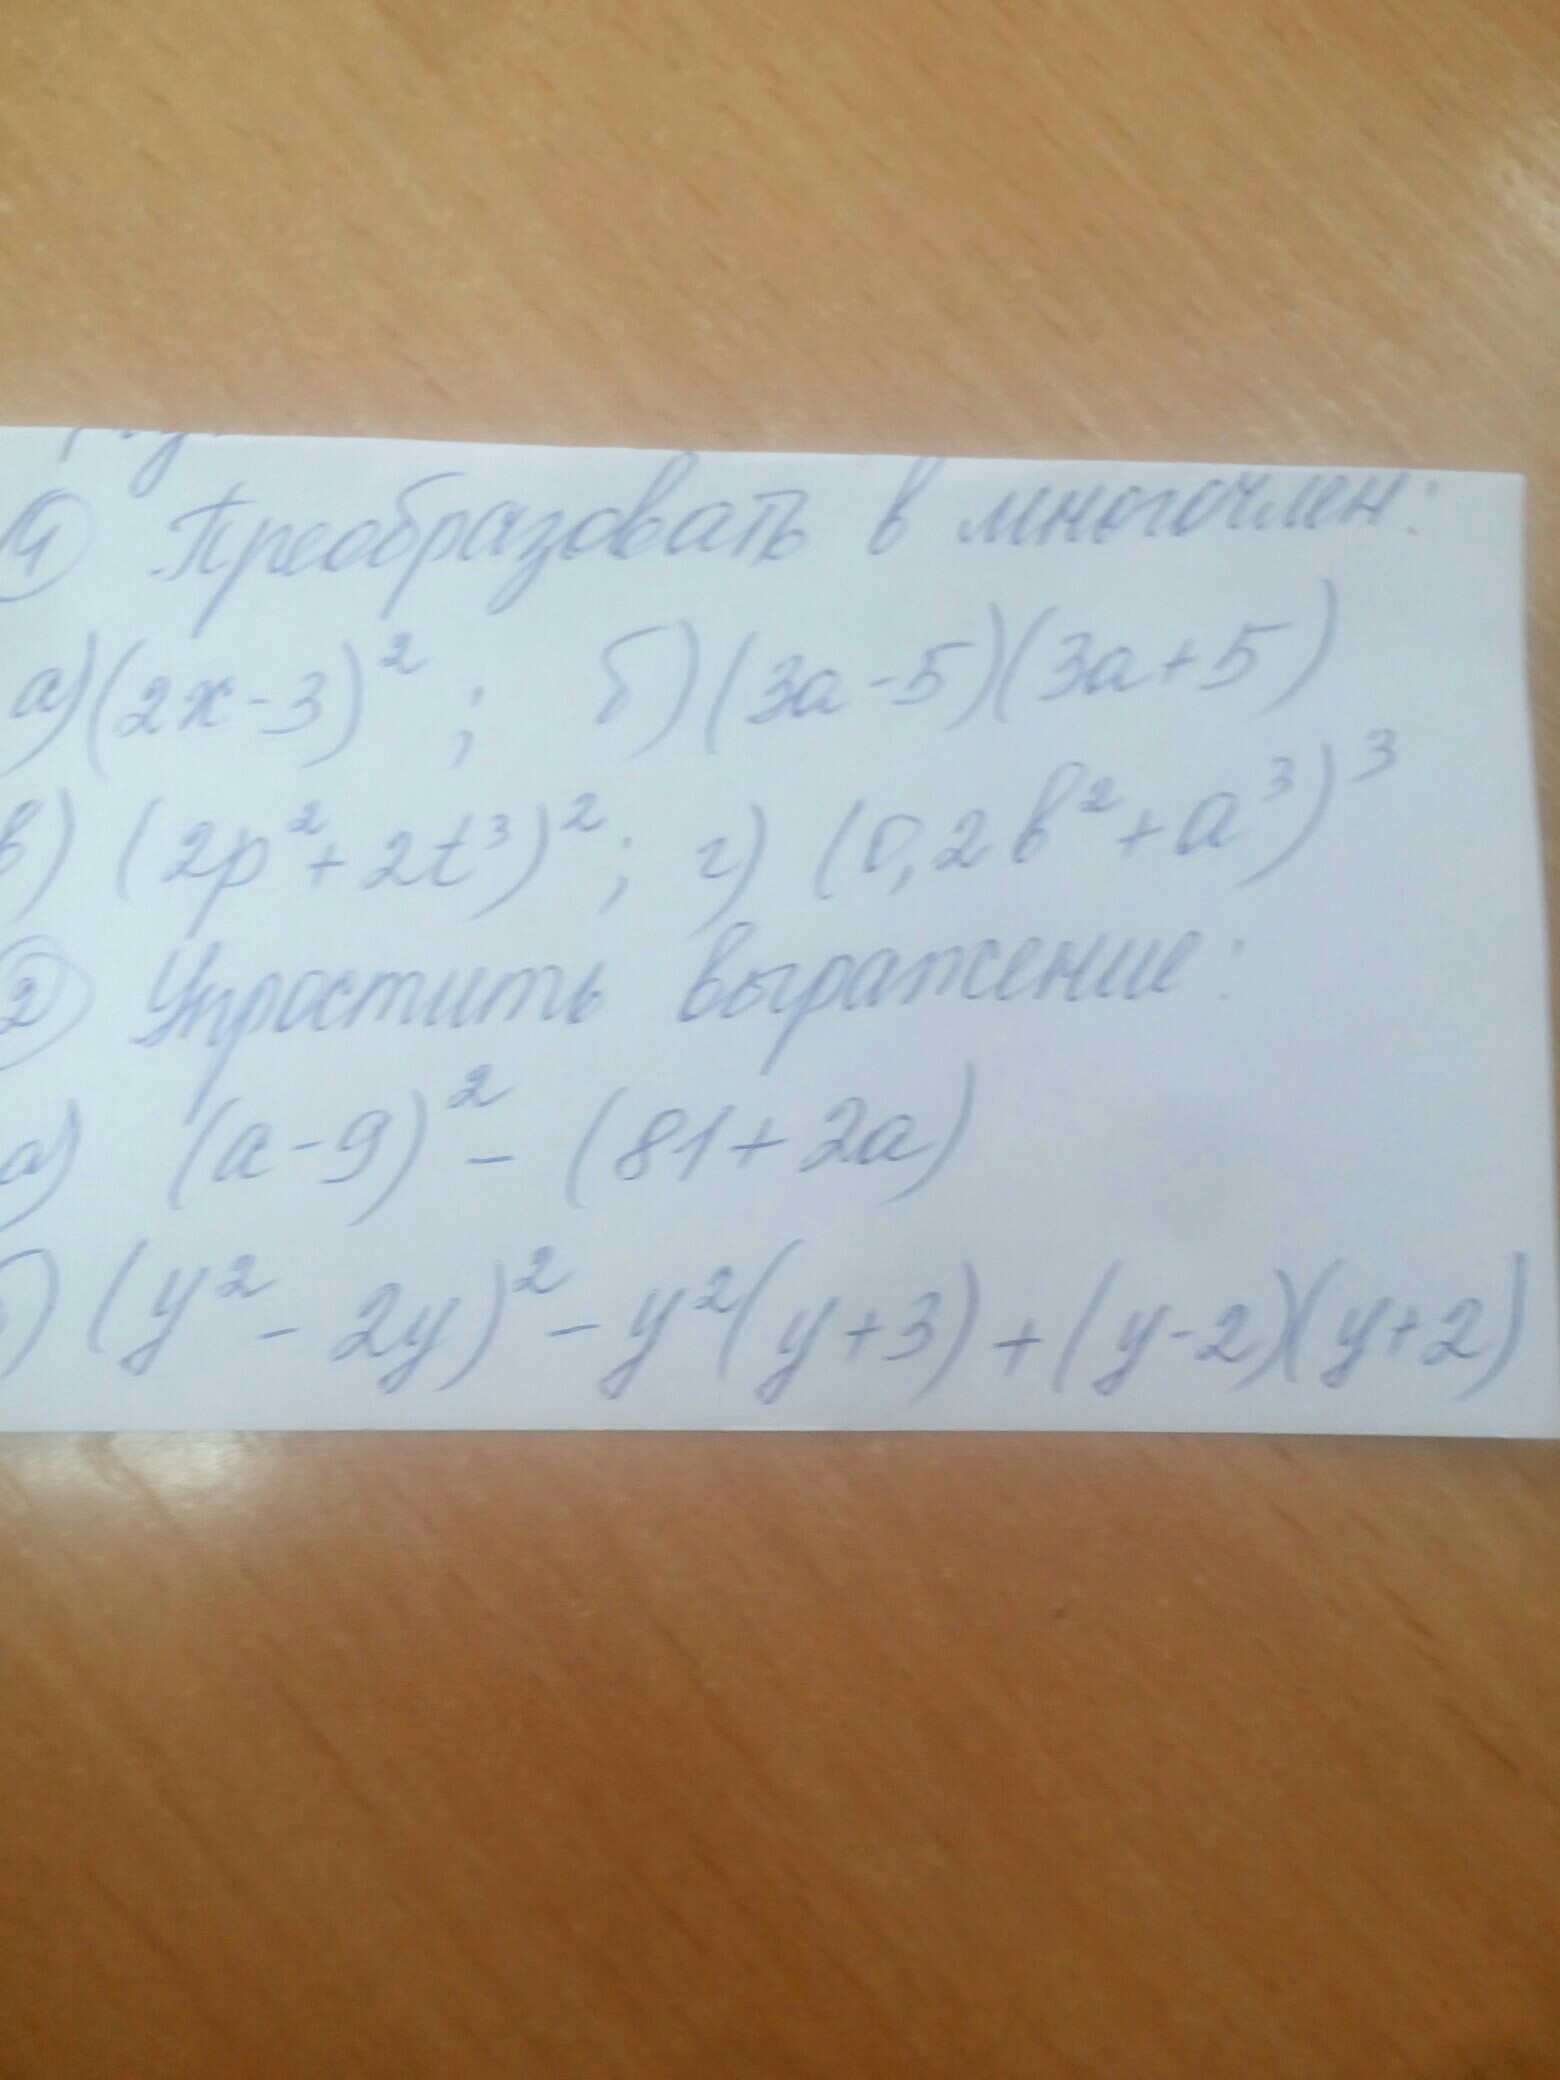 ① Преобразовать в многочлен:
а) (2x-3)²; б) (3a-5)(3a+5)
в) (2p²+2t³)²; г) (0,2b²+a³)³
② Упростить выражение:
а) (a-9)² - (81+2a)
б) (y²-2y)² - y²(y+3) + (y-2)(y+2)